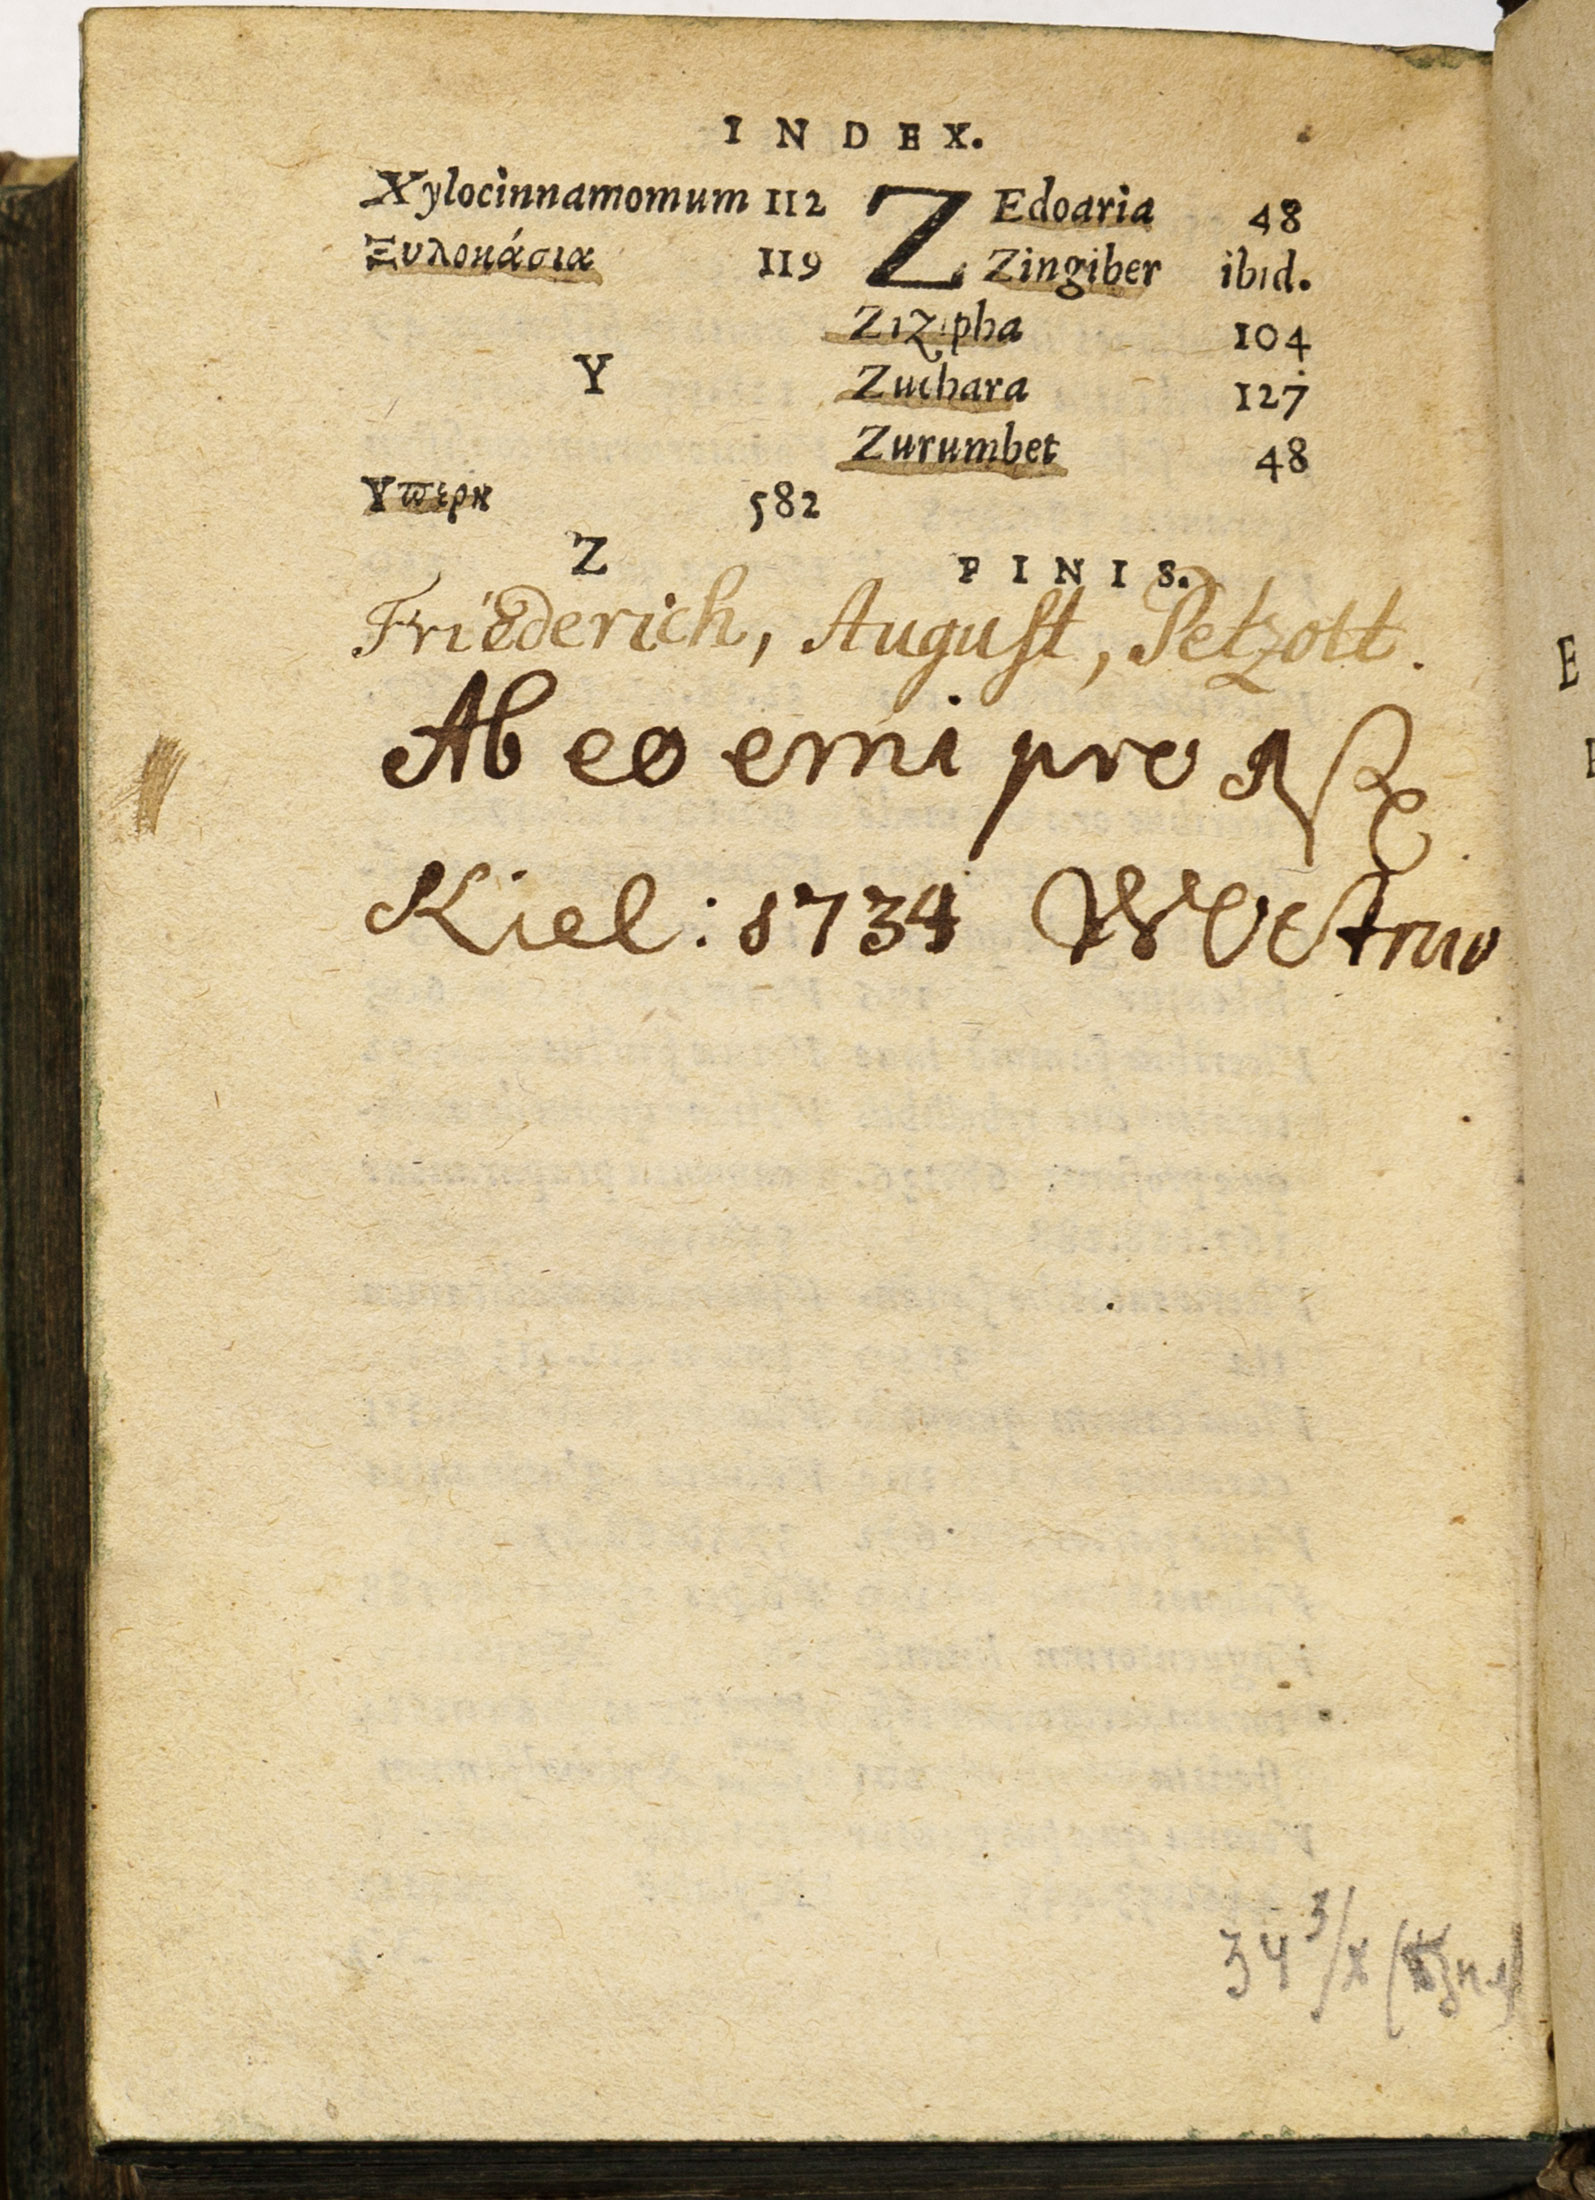 INDEX.
Xylocinnamomum 112
Ξυλοκάσια 119
Y
Υπερη 582
Z
ZEdoaria 48
Zingiber ibid.
Zizipha 104
Zuchara 127
Zurumbet 48
FINIS.
Friederich, August, Petzott.
Ab eo emi pro
Kiel: 1734
34 3/x